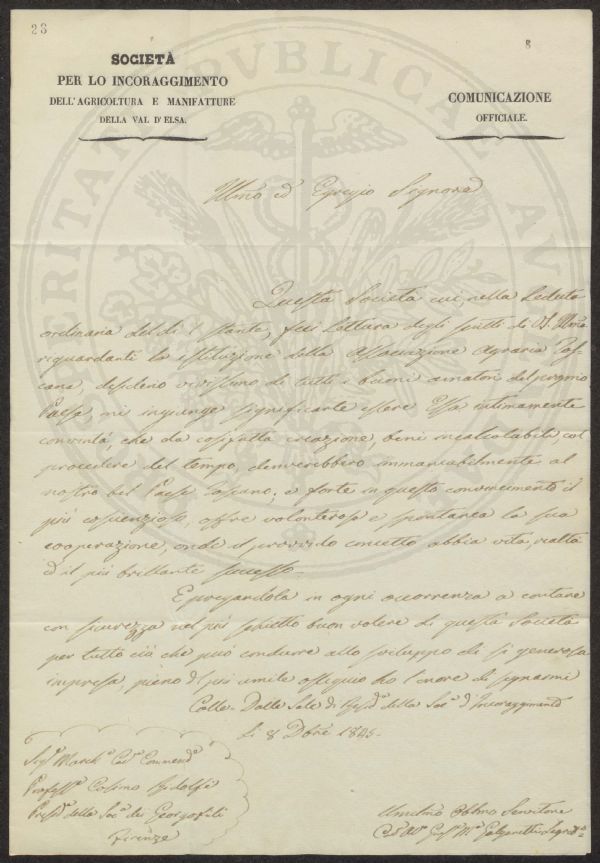 23
8
SOCIETÀ
PER LO INCORAGGIMENTO
DELL'AGRICOLTURA E MANIFATTURE
DELLA VAL D'ELSA.
COMUNICAZIONE
OFFICIALE.
Illmo ed Egregio Signore
Questa Società cui, nella Seduta
ordinaria del dì 1 stante, feci lettura degli scritti di
riguardanti la istituzione della Associazione Agraria Tos-
cana, desiderio vivissimo di tutti i buoni amatori del proprio
Paese, mi ingiunge significarle essere Essa intimamente
convinta, che da cosifatta creazione, beni incalcolabili, col
procedere del tempo, deriverebbero immancabilmente al
nostro bel Paese Toscano; e forte in questo convincimento il
più coscienzioso, offre volonterosa e spontanea la sua
cooperazione, onde il provvido concetto abbia vita, realtà
ed il più brillante successo.
E pregandola in ogni occorrenza a contare
con sicurezza nel più schietto buon volere di questa Società
per tutto ciò che può condurre allo sviluppo di sì generosa
impresa, pieno del più umile ossequio ho l'onore di segnarmi
Colle - Dalle Sale di Resid.a della Soc.a d'Incoraggimento
Li 8 Dbre 1845.
Sig.r March.e Cav.e Commend.e
Profess.e Cosimo Ridolfi
Presid.e della Soc.a dei Georgofili
Firenze
Umilmo Obblmo Servitore